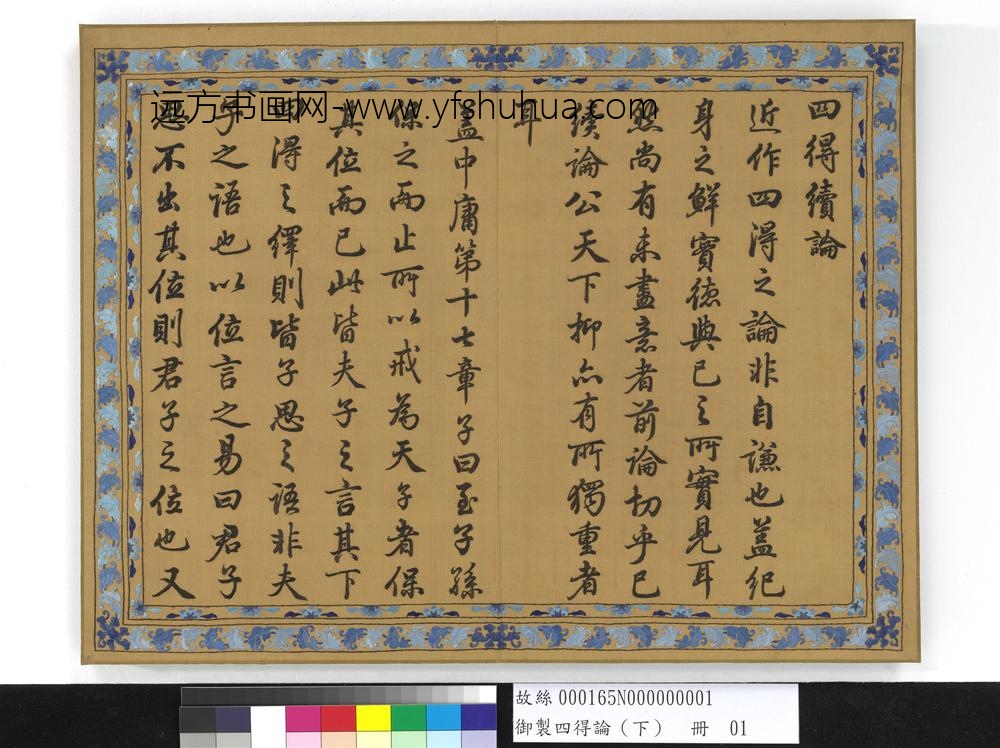 四得續論
近作四得之論非自謙也蓋紀
身之鮮實德與已之所實見耳
然尚有未盡意者前論切乎已
續論公天下抑亦有所獨重者
耳
蓋中庸第十七章子曰至子孫
保之而止所以戒為天子者保
其位而已此皆夫子之言其下
四得之繹則皆子思之語非夫
子之語也以位言之易曰君子
思不出其位則君子之位也又
远方书画网-www.yfshuhua.com
故絲000165N000000001
御製四得論(下) 冊 01